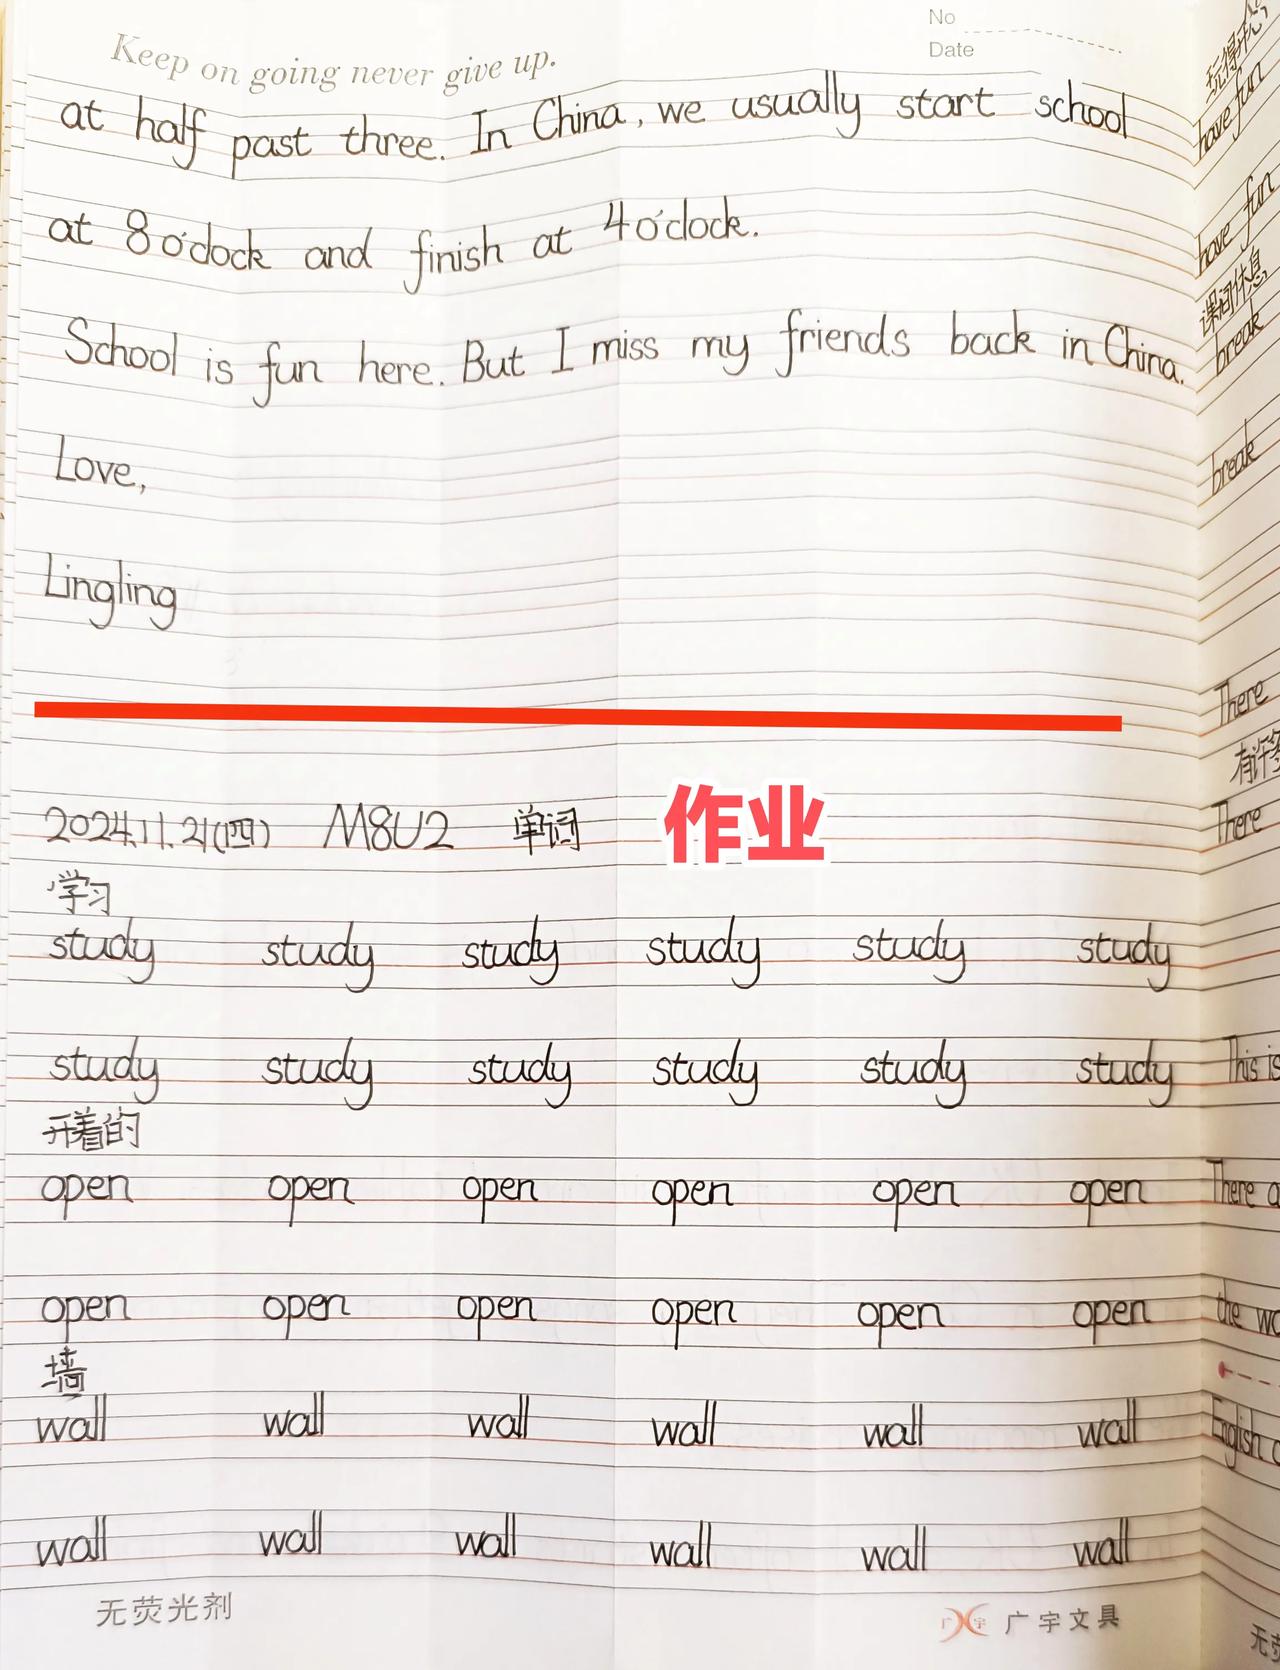 No
Date
Keep on going never give up.
at half past three. In China, we usually start school
at 8 o'clock and finish at 4 o'clock.
School is fun here. But I miss my friends back in China.
Love,
Lingling
2024.11.21(四) M8U2 单词 作业
学习
study study study study study study
study study study study study study
开着的
open open open open open open
open open open open open open
墙
wall wall wall wall wall wall
wall wall wall wall wall wall
无荧光剂 广宇 广宇文具
玩得开心
have fun
have fun
课间休息
break
break
There
There
This is
There
the
English